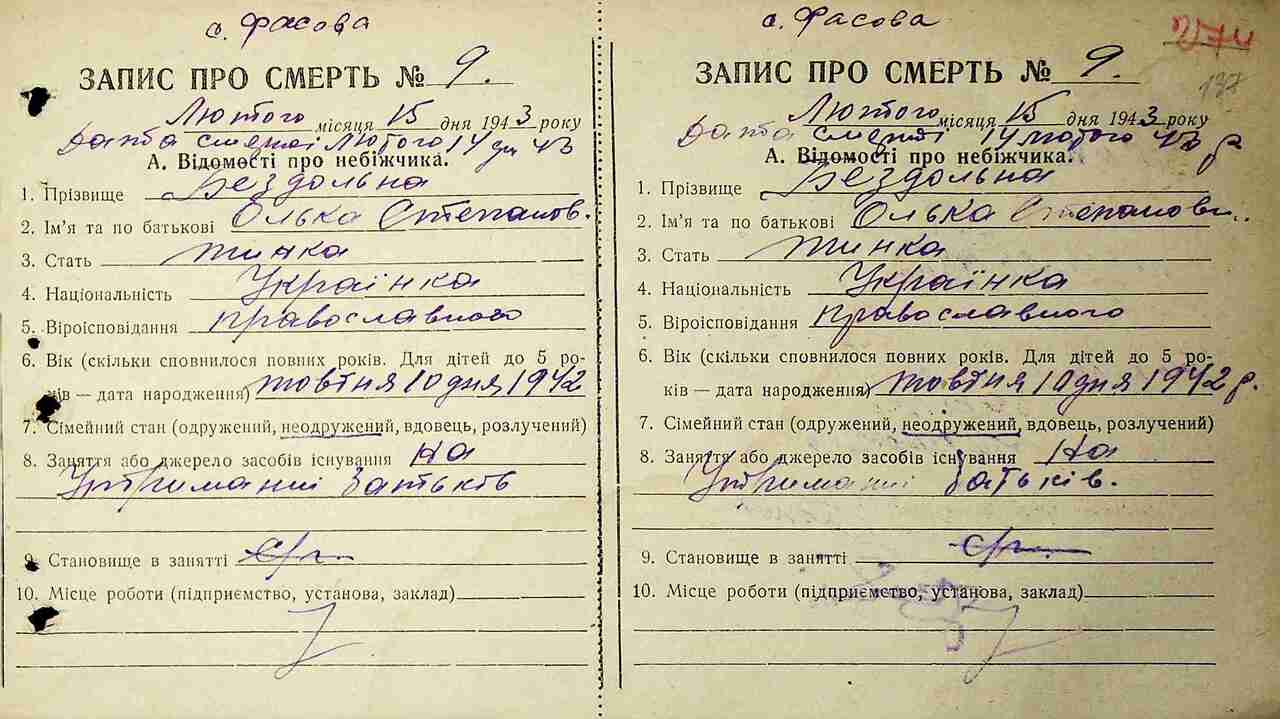 с. Фасова
ЗАПИС ПРО СМЕРТЬ № 9.
Лютого місяця 15 дня 1943 року
Дата смерті Лютого 14 дн 43
А. Відомості про небіжчика.
1. Прізвище Бездольна
2. Ім’я та по батькові Олька Степанов.
3. Стать жинка
4. Національність Українка
5. Віроісповідання православного
6. Вік (скільки сповнилося повних років. Для дітей до 5 ро-
ків — дата народження) жовтня 10 дня 1942
7. Сімейний стан (одружений, неодружений, вдовець, розлучений)
8. Заняття або джерело засобів існування На
Утриманні батьків
9. Становище в занятті
10. Місце роботи (підприємство, установа, заклад)
с. Фасова
274
137
ЗАПИС ПРО СМЕРТЬ № 9.
Лютого місяця 15 дня 1943 року
Дата смерті 14 лютого 43 р
А. Відомості про небіжчика.
1. Прізвище Бездольна
2. Ім’я та по батькові Олька Степанови..
3. Стать жинка
4. Національність Українка
5. Віроісповідання православного
6. Вік (скільки сповнилося повних років. Для дітей до 5 ро-
ків — дата народження) жовтня 10 дня 1942 р.
7. Сімейний стан (одружений, неодружений, вдовець, розлучений)
8. Заняття або джерело засобів існування На
Утриманні батьків.
9. Становище в занятті
10. Місце роботи (підприємство, установа, заклад)